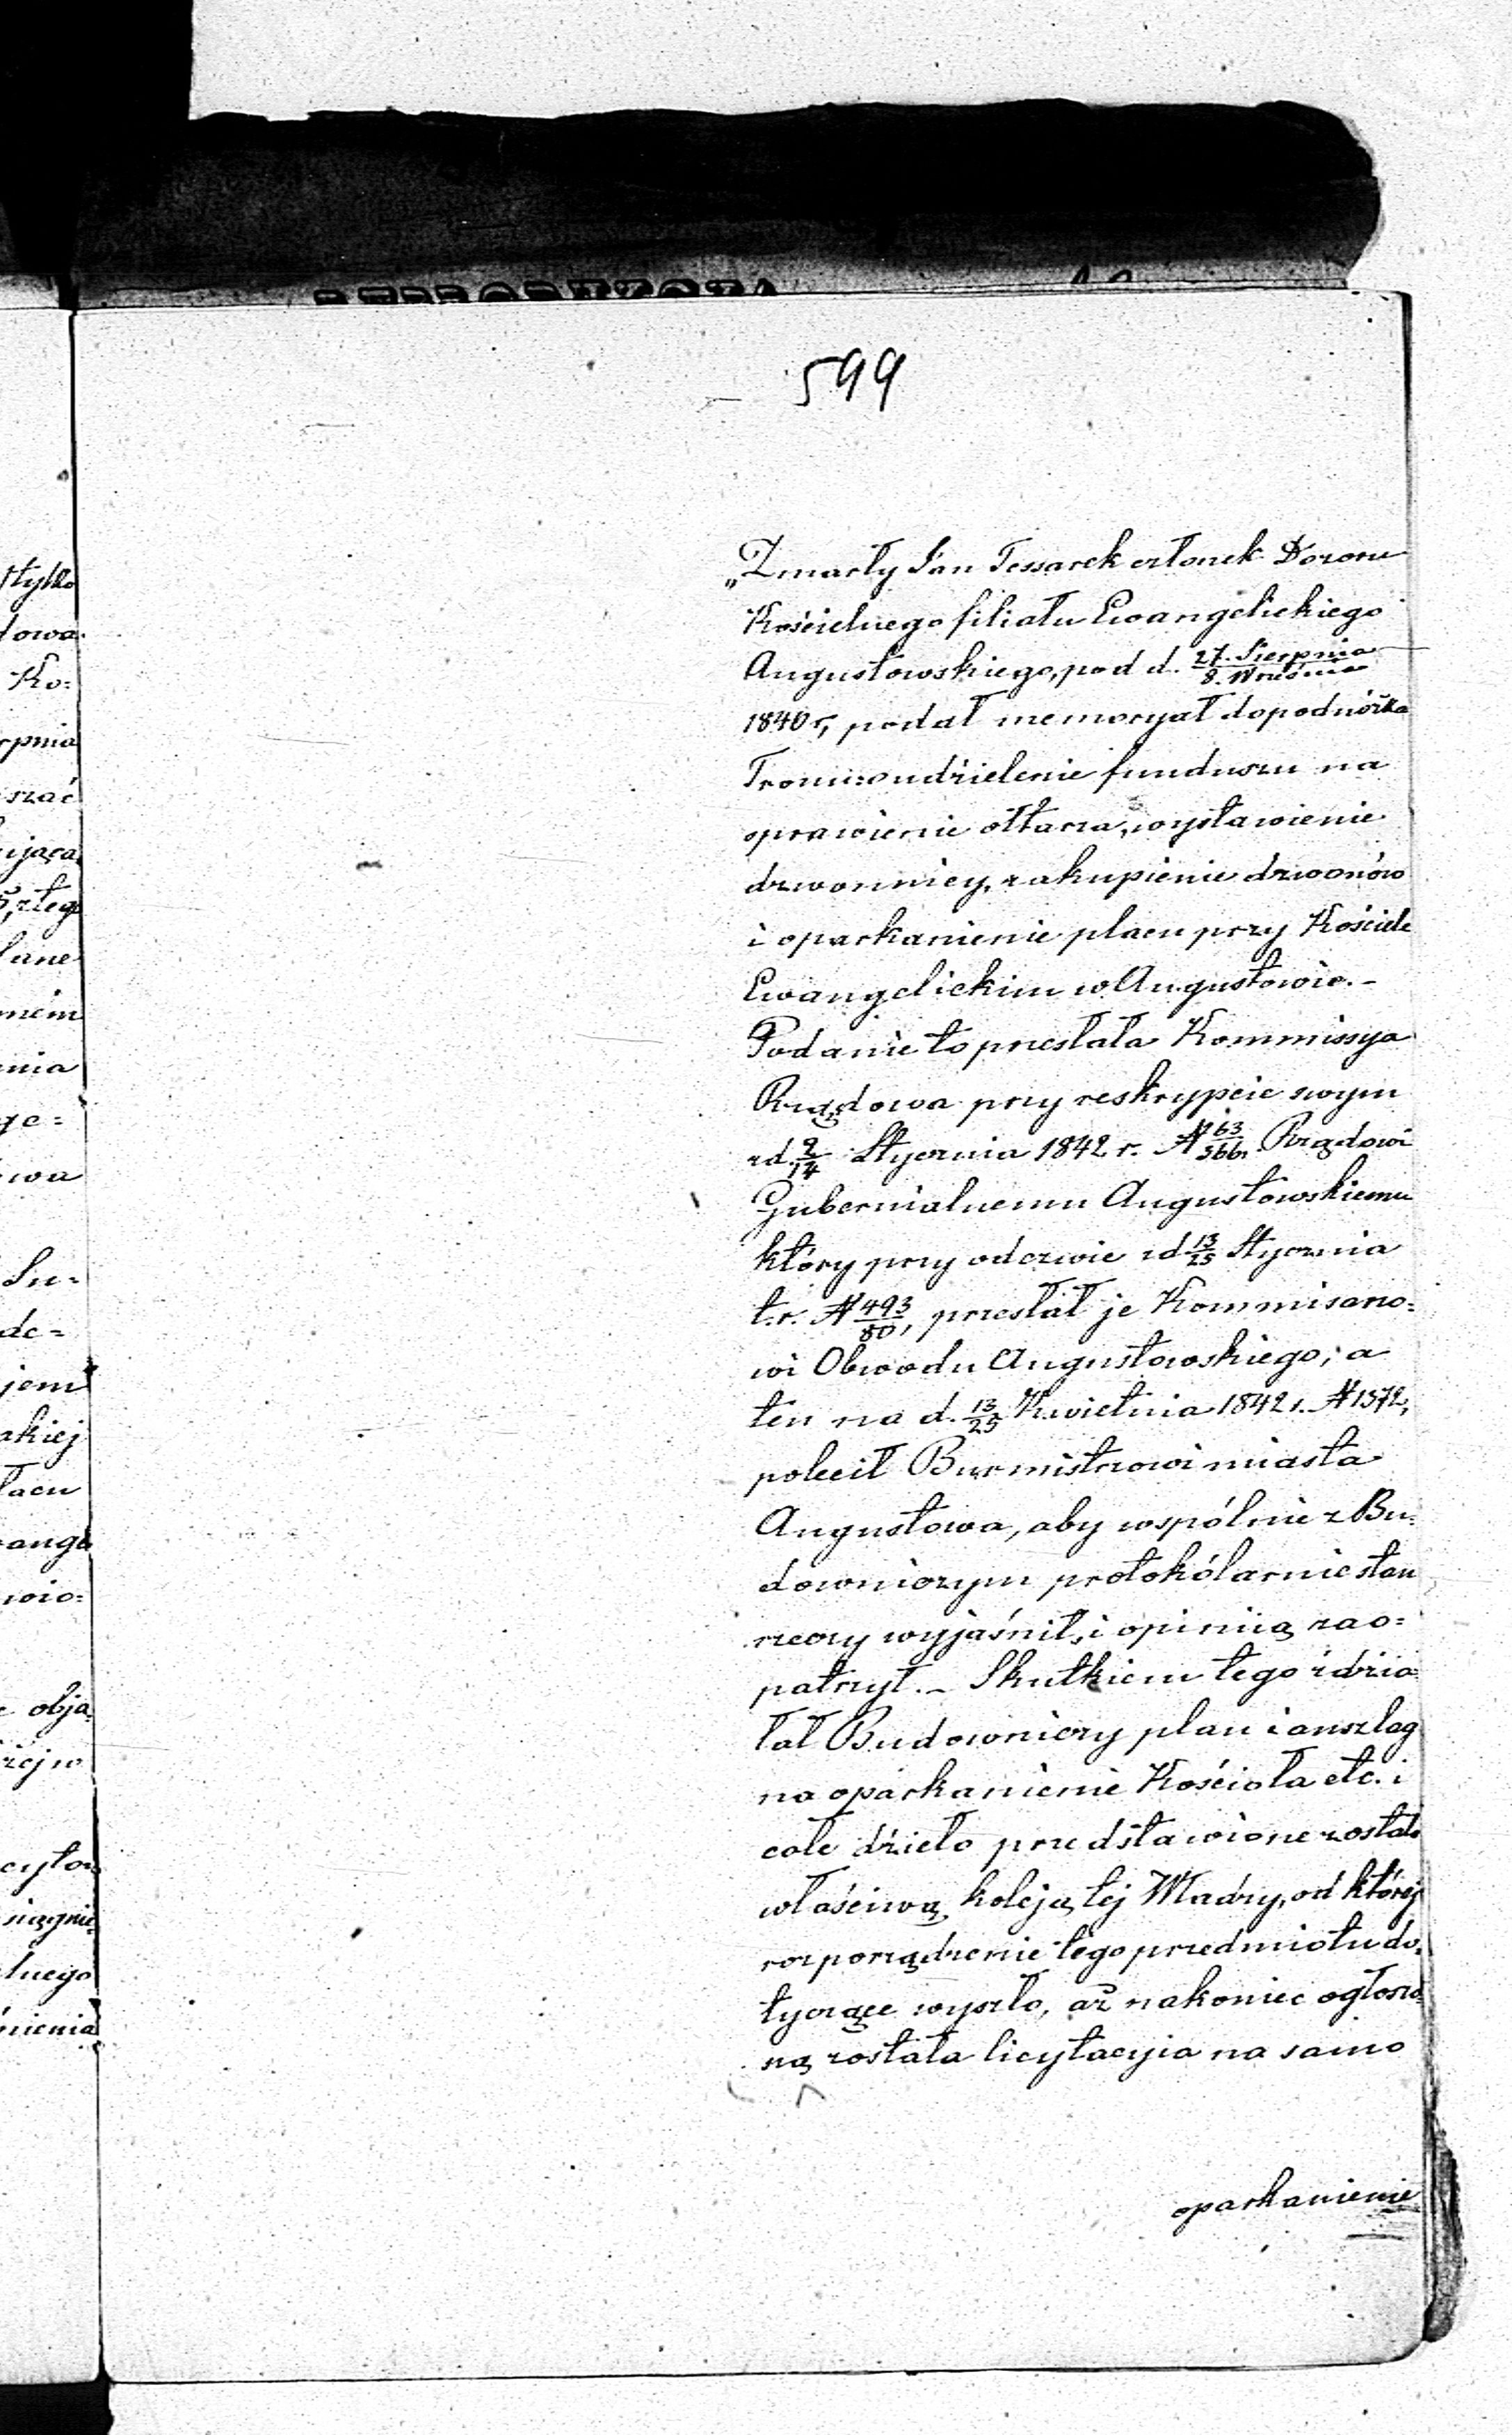 599
„Zmarły Jan Tessarek członek Dozoru
Kościelnego filiału Ewangelickiego
Augustowskiego, pod d. 27. Sierpnia/8. Września
1840 r, podał memoryał do podnóżka
Tronu: o udzielenie funduszu na
oprawienie ołtarza, wystawienie
dzwonnicy, zakupienie dzwonów
i oparkanienie placu przy Kościele
Ewangelickim w Augustowie. –
Podanie to przesłała Kommissya
Rządowa przy reskrypcie swym
z d. 2/14 Stycznia 1842 r. № 163/566. Rządowi
Gubernialnemu Augustowskiemu
który przy odezwie z d 13/25 Stycznia
t. r. № 493/80, przesłał je Kommisarzo=
wi Obwodu Augustowskiego; a
ten na d. 13/25 Kwietnia 1842 r. № 1572,
polecił Burmistrzowi miasta
Augustowa, aby wspólnie z Bu=
downiczym protokólarnie stan
rzeczy wyjaśnił, i opinią zao=
patrzył. – Skutkiem tego zdzia=
łał Budowniczy plan i anszlag
na oparkanienie Kościoła etc. i
całe dzieło przedstawione zostało
właściwą koleją tej Władzy, od której
rozporządzenie tego przedmiotu do=
tyczące wyszło, aż nakoniec ogłoszo=
ną została licytacyia na samo
oparkanienie
stylko
dowa
Ko=
rpnia
szać
ijąca
złego
lane
niem
nia
ge=
wa
Su=
de=
jem
akiej
łacu
ange
wio=
obja=
żej w
lnego
nienia